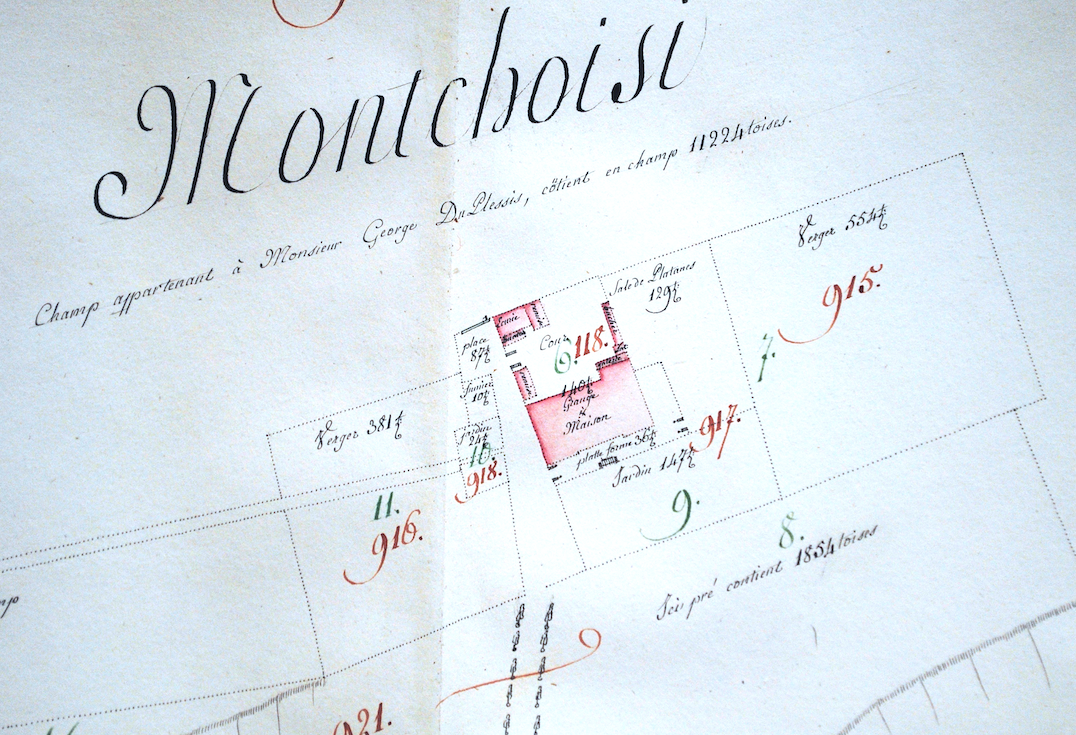 Montchoisi
Champ appartenant à Monsieur George DuPlessis, côtient en champ 11224 toises.
Verger 554½
915.
Sale de Platanes
129½
7.
Ecurie
Cour
6. 118.
place
87½
fumier
10½
140½
Grange
&
Maison
Verger 381½
jardin
24½
10.
918.
platte forme 36½
917.
Jardin 147½
9.
11.
916.
8.
pré contient 1854 toises
21.